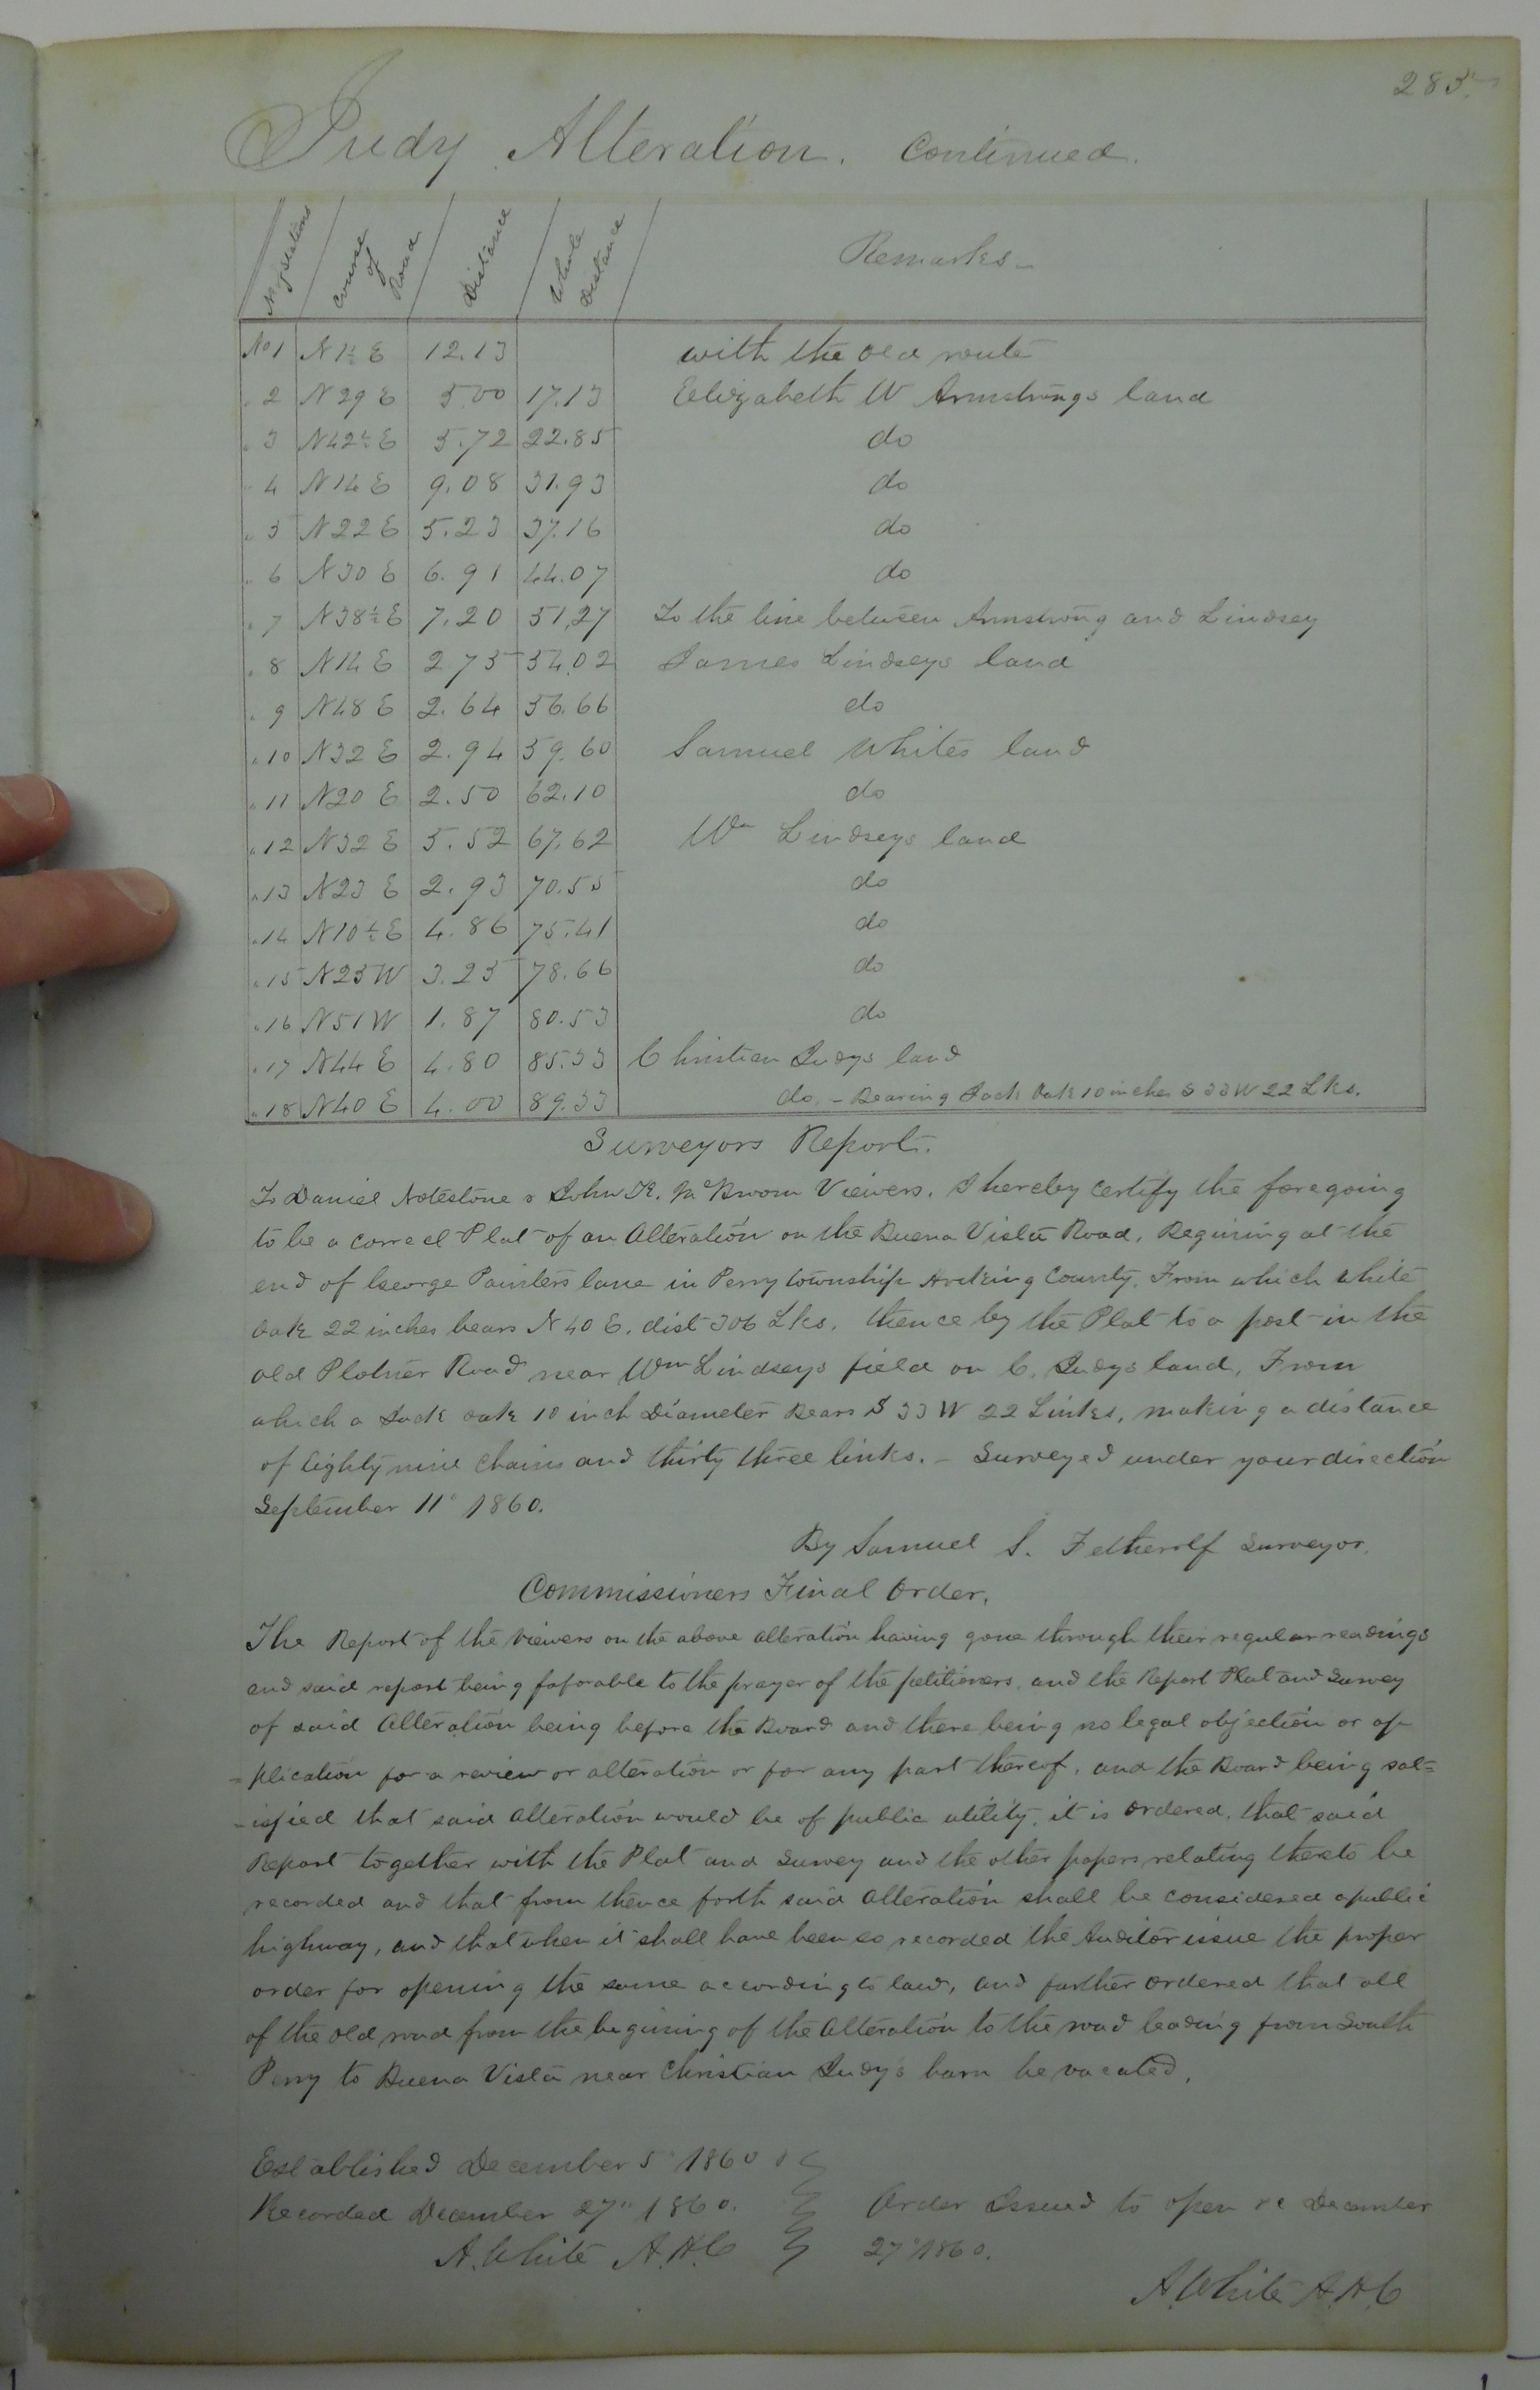 285
Judy Alteration. Continued.
No of Stations | Course of Road | Distance | Whole Distance | Remarks
No 1 N 1½ E 12.13 with the old route
" 2 N 29 E 5.00 17.13 Elizabeth W Armstrongs land
" 3 N 42½ E 5.72 22.85 do
" 4 N 14 E 9.08 31.93 do
" 5 N 22 E 5.23 37.16 do
" 6 N 30 E 6.91 44.07 do
" 7 N 38½ E 7.20 51.27 To the line between Armstrong and Lindsey
" 8 N 14 E 2.75 54.02 James Lindseys land
" 9 N 48 E 2.64 56.66 do
" 10 N 32 E 2.94 59.60 Samuel Whites land
" 11 N 20 E 2.50 62.10 do
" 12 N 32 E 5.52 67.62 Wm Lindseys land
" 13 N 23 E 2.93 70.55 do
" 14 N 10½ E 4.86 75.41 do
" 15 N 25 W 3.25 78.66 do
" 16 N 51 W 1.87 80.53 do
" 17 N 44 E 4.80 85.33 Christian Judys land
" 18 N 40 E 4.00 89.33 do. - Bearing Jack Oak 10 inches S 33 W 22 Lks.
Surveyors Report.
To Daniel Notestone & John K. McBroom Viewers. I hereby Certify the foregoing
to be a correct Plat of an Alteration on the Buena Vista Road, Begining at the
end of George Painters lane in Perry township Hocking County. From which white
oak 22 inches bears N 40 E. dist 306 Lks. thence by the Plat to a post in the
old Plotner Road near Wm Lindseys field on C. Judys land. From
which a Jack oak 10 inch Diameter Bears S 33 W 22 Links, making a distance
of Eighty nine Chains and thirty three links. - Surveyed under your direction
September 11" 1860.
By Samuel S. Fetherolf Surveyor.
Commissioners Final Order.
The Report of the Viewers on the above alteration having gone through their regular readings
and said report being faforable to the prayer of the petitioners, and the Report Plat and Survey
of said Alteration being before the Board and there being no legal objection or ap-
=plication for a review or alteration or for any part thereof, and the Board being sat=
-isfied that said Alteration would be of public utility, it is ordered, that said
Report together with the Plat and Survey and the other papers relating thereto be
recorded and that from thence forth said Alteration shall be considered a public
highway, and that when it shall have been so recorded the Auditor issue the proper
order for opening the same according to law, and further ordered that all
of the old road from the begining of the Alteration to the road leading from South
Perry to Buena Vista near Christian Judy's barn be vacated.
Established December 5" 1860
Recorded December 27" 1860. Order Issued to open &c December
A. White A.H.C 27" 1860.
A. White A.H.C